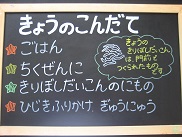 きょうのこんだて
ごはん
ちくぜんに
きりぼしだいこんのにもの
ひじきふりかけ ぎゅうにゅう
きょうの
きりぼしだいこん
は、門前で
つくられた
ものです